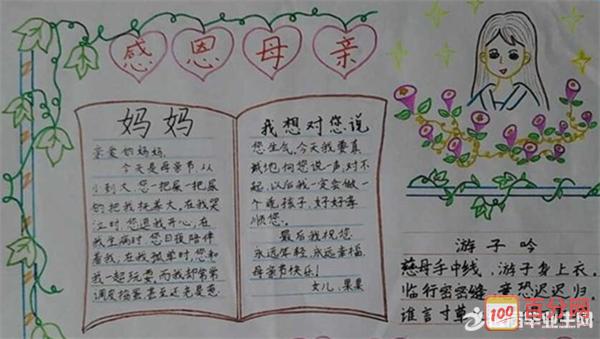 感恩母亲
妈妈
亲爱的妈妈:
今天是母亲节,从
小到大,您一把屎一把尿
的把我抚养大,在我哭
泣时,您逗我开心,在
我生病时,您日夜陪伴
着我,在我孤单时,您和
我一起玩耍,而我却常常
调皮捣蛋,甚至还老是惹
我想对您说
您生气,今天我要真
诚地向您说一声,对不
起,以后我一定会做一
个乖孩子,好好孝
顺您。
最后我祝您
永远年轻,永远幸福,
母亲节快乐!
女儿:果果
游子吟
慈母手中线,游子身上衣。
临行密密缝,意恐迟迟归
谁言寸草
100 百分网
毕业生网